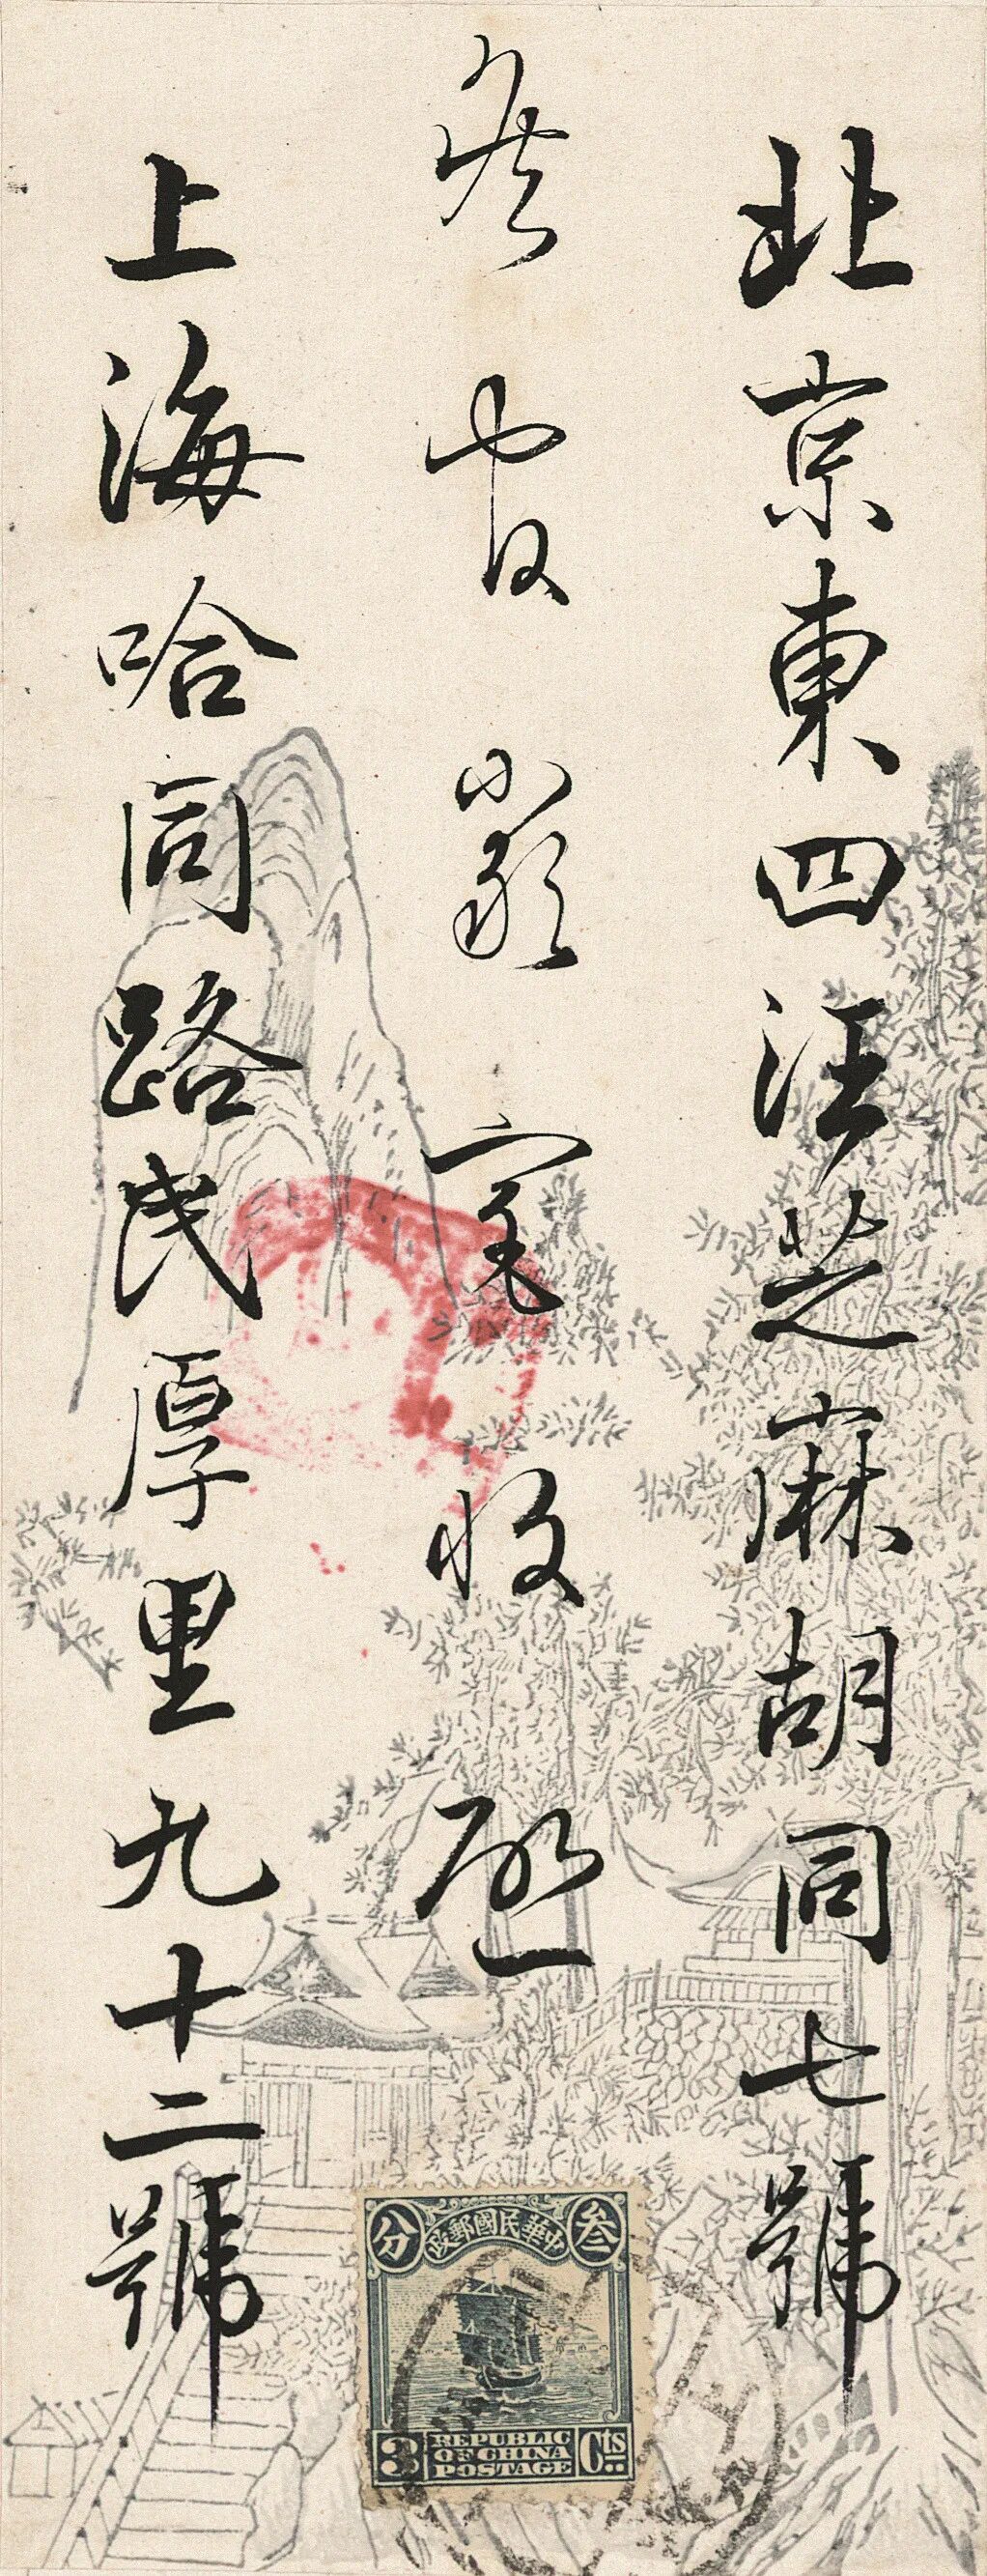 北京東四汪芝麻胡同七號
矦官嚴宅收啟
上海哈同路民厚里九十二號
中華民國郵政
叁分
3 REPUBLIC Cts
OF CHINA
POSTAGE